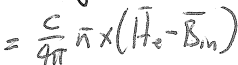 = c/4π n̄ × (H̄e - B̄in)